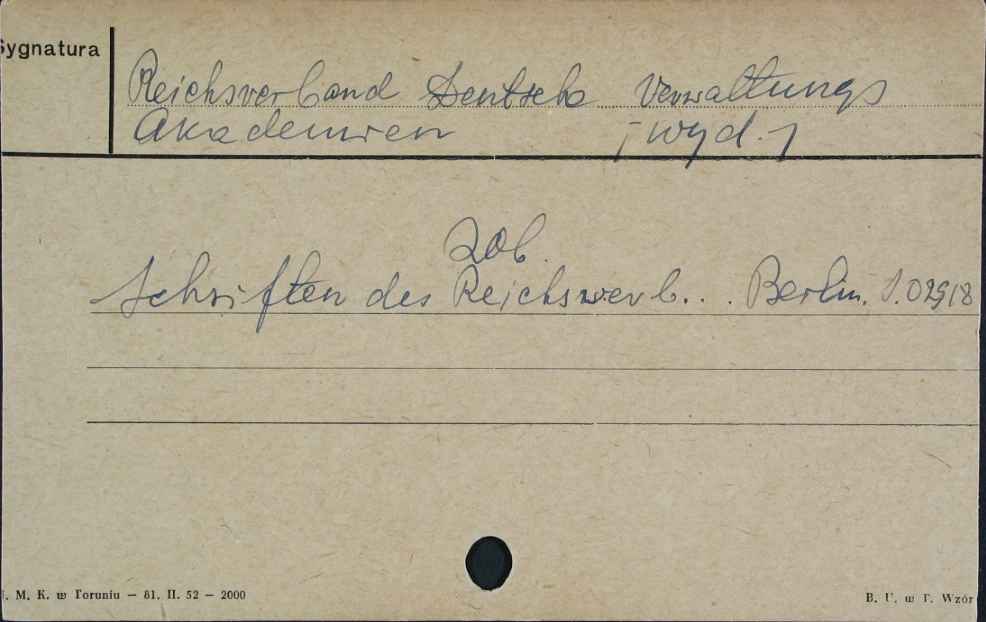 Sygnatura
Reichsverband Deutsch. Verwaltungs
Akademien [wyd.]
Zob.
Schriften des Reichsverb... Berlin. S.02918
U. M. K. w Toruniu — 81. II. 52 — 2000
B. U. w T. Wzór